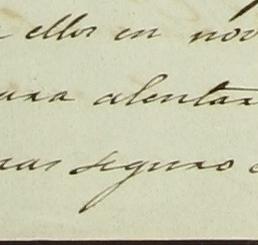 ellos en nov
para alentar
mas seguro